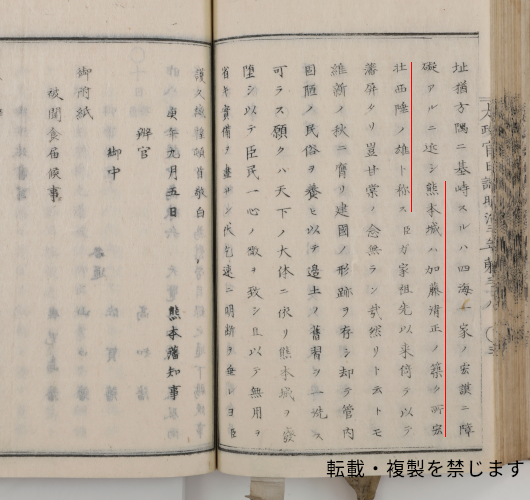 址猶方隅ニ基峙スルハ四海一家ノ宏謨ニ障
礙アルニ近シ熊本城ハ加藤清正ノ築ク所宏
壮西陲ノ雄ト称ス臣ガ家祖先以来倚テ以テ
藩屏タリ豈甘棠ノ念無ランヤ然リト云トモ
維新ノ秋ニ膺リ建国ノ形跡ヲ存シ却テ管内
固陋ノ民俗ヲ養ヒ以テ辺土ノ旧習ヲ一洗ス
可ラス願クハ天下ノ大体ニ依リ熊本城ヲ
堕シ以テ臣民一心ノ徴ヲ致シ且以テ無用ヲ
省キ実備ヲ尽サン伏乞速ニ明断ヲ垂レヨ臣
護久誠惶頓首敬白
庚午九月五日 熊本藩知事
辨官
御中
御附紙
被聞食届候事
太政官日誌明治三年第三十八
転載・複製を禁じます